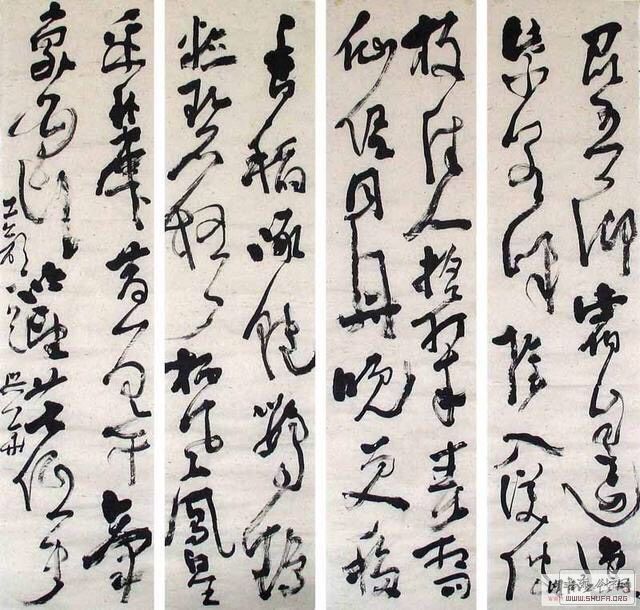 昆吾御宿自逶迤
紫阁峰陰入渼陂
枝佳人拾翠春相問
仙侣同舟晚更移
香稻啄餘鸚鵡
粒碧梧栖老鳳皇
彩筆昔曾干氣
象白頭吟望苦低垂
WWW.SHUFA.ORG